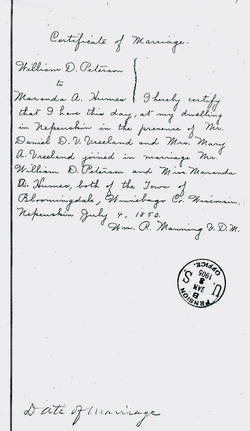 Certificate of Marriage.
William D. Peterson
to
Maranda A. Humes } I hereby certify
that I have this day, at my dwelling
in Nepeuskin in the presence of Mr.
Daniel D. V. Vreeland and Mrs. Mary
A. Vreeland joined in marriage Mr.
William D. Peterson and Miss Maranda
A. Humes, both of the Town of
Bloomingdale, Winnebago C. Wisconsin.
Nepeuskin July 4, 1850.
Wm. R. Manning V. D. M.
U. S. PENSION OFFICE.
JAN 1905
Date of Marriage